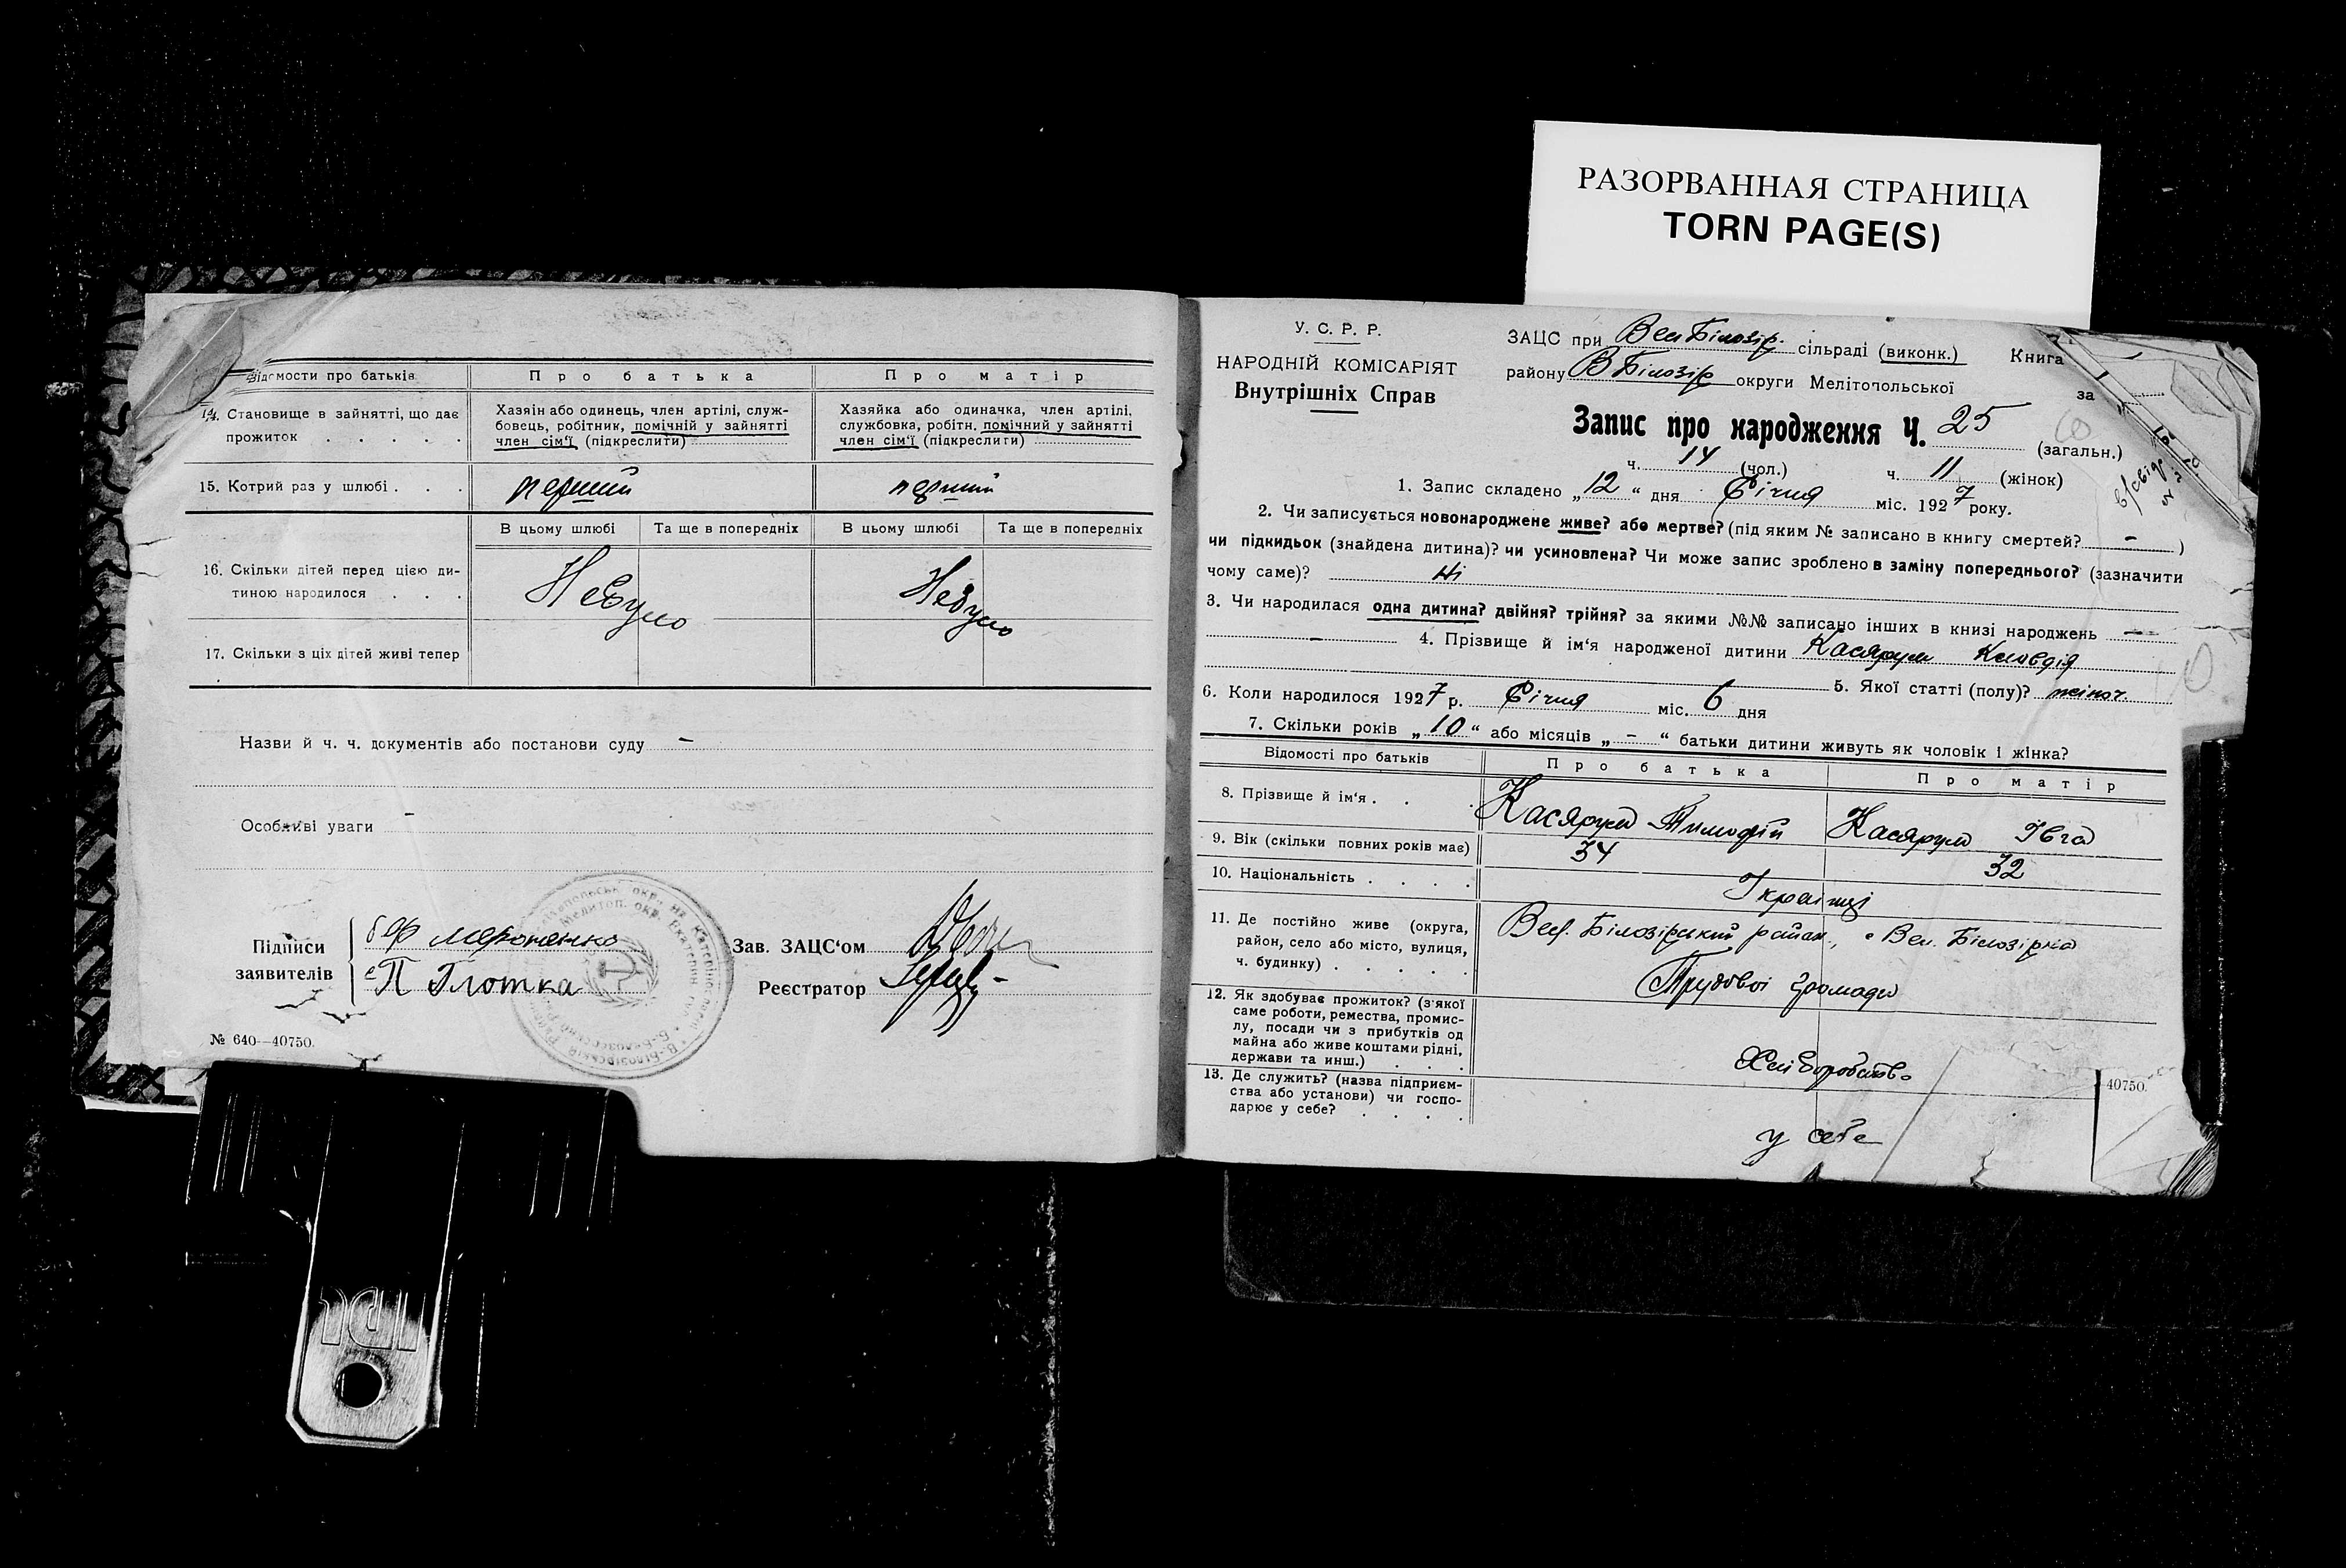 РАЗОРВАННАЯ СТРАНИЦА
TORN PAGE(S)
Відомости про батьків
Про батька
Про матір
14. Становище в зайнятті, що дає
прожиток . . . . .
Хазяін або одинець, член артілі, служ-
бовець, робітник, помічній у зайнятті
член сім'ї (підкреслити)
Хазяйка або одиначка, член артілі,
службовка, робітн. помічний у зайнятті
член сім'ї (підкреслити)
15. Котрий раз у шлюбі . . .
перший
перший
В цьому шлюбі
Та ще в попередніх
В цьому шлюбі
Та ще в попередніх
16. Скільки дітей перед цією ди-
тиною народилося . . .
Небуло
Небуло
17. Скільки з ціх дітей живі тепер
Назви й ч. ч. документів або постанови суду –
Особливі уваги –
Підписи
заявителів
П Глотка
Зав. ЗАЦС'ом
Реєстратор
№ 640—40750.
У. С. Р. Р.
НАРОДНІЙ КОМІСАРІЯТ
Внутрішніх Справ
ЗАЦС при Вел Білозір. сільраді (виконк.) Книга
району В Білозір округи Мелітопольської
за
Запис про народження Ч. 25 (загальн.)
ч. 14 (чол.) ч. 11 (жінок)
1. Запис складено „12“ дня Січня міс. 1927 року.
2. Чи записується новонароджене живе? або мертве? (під яким № записано в книгу смертей? – )
чи підкидьок (знайдена дитина)? чи усиновлена? Чи може запис зроблено в заміну попереднього? (зазначити
чому саме)? Ні
3. Чи народилася одна дитина? двійня? трійня? за якими №№ записано інших в книзі народжень –
– 4. Прізвище й ім'я народженої дитини Касярум Кловдія
5. Якої статті (полу)? жіноч.
6. Коли народилося 1927 р. Січня міс. 6 дня
7. Скільки років „10“ або місяців „–“ батьки дитини живуть як чоловік і жінка?
Відомості про батьків
Про батька
Про матір
8. Прізвище й ім'я . .
Касярум Тимофій
Касярум Івга
9. Вік (скільки повних років має)
34
32
10. Національність . . . .
Україці
11. Де постійно живе (округа,
район, село або місто, вулиця,
ч. будинку) . . . . .
Вел. Білозірський район, с Вел. Білозірка
Трудової громади
12. Як здобуває прожиток? (з'якої
саме роботи, ремества, промис-
лу, посади чи з прибутків од
майна або живе коштами рідні,
держави та инш.) . . .
Хліборобство
13. Де служить? (назва підприєм-
ства або установи) чи госпо-
дарює у себе? . . . .
у себе
40750.